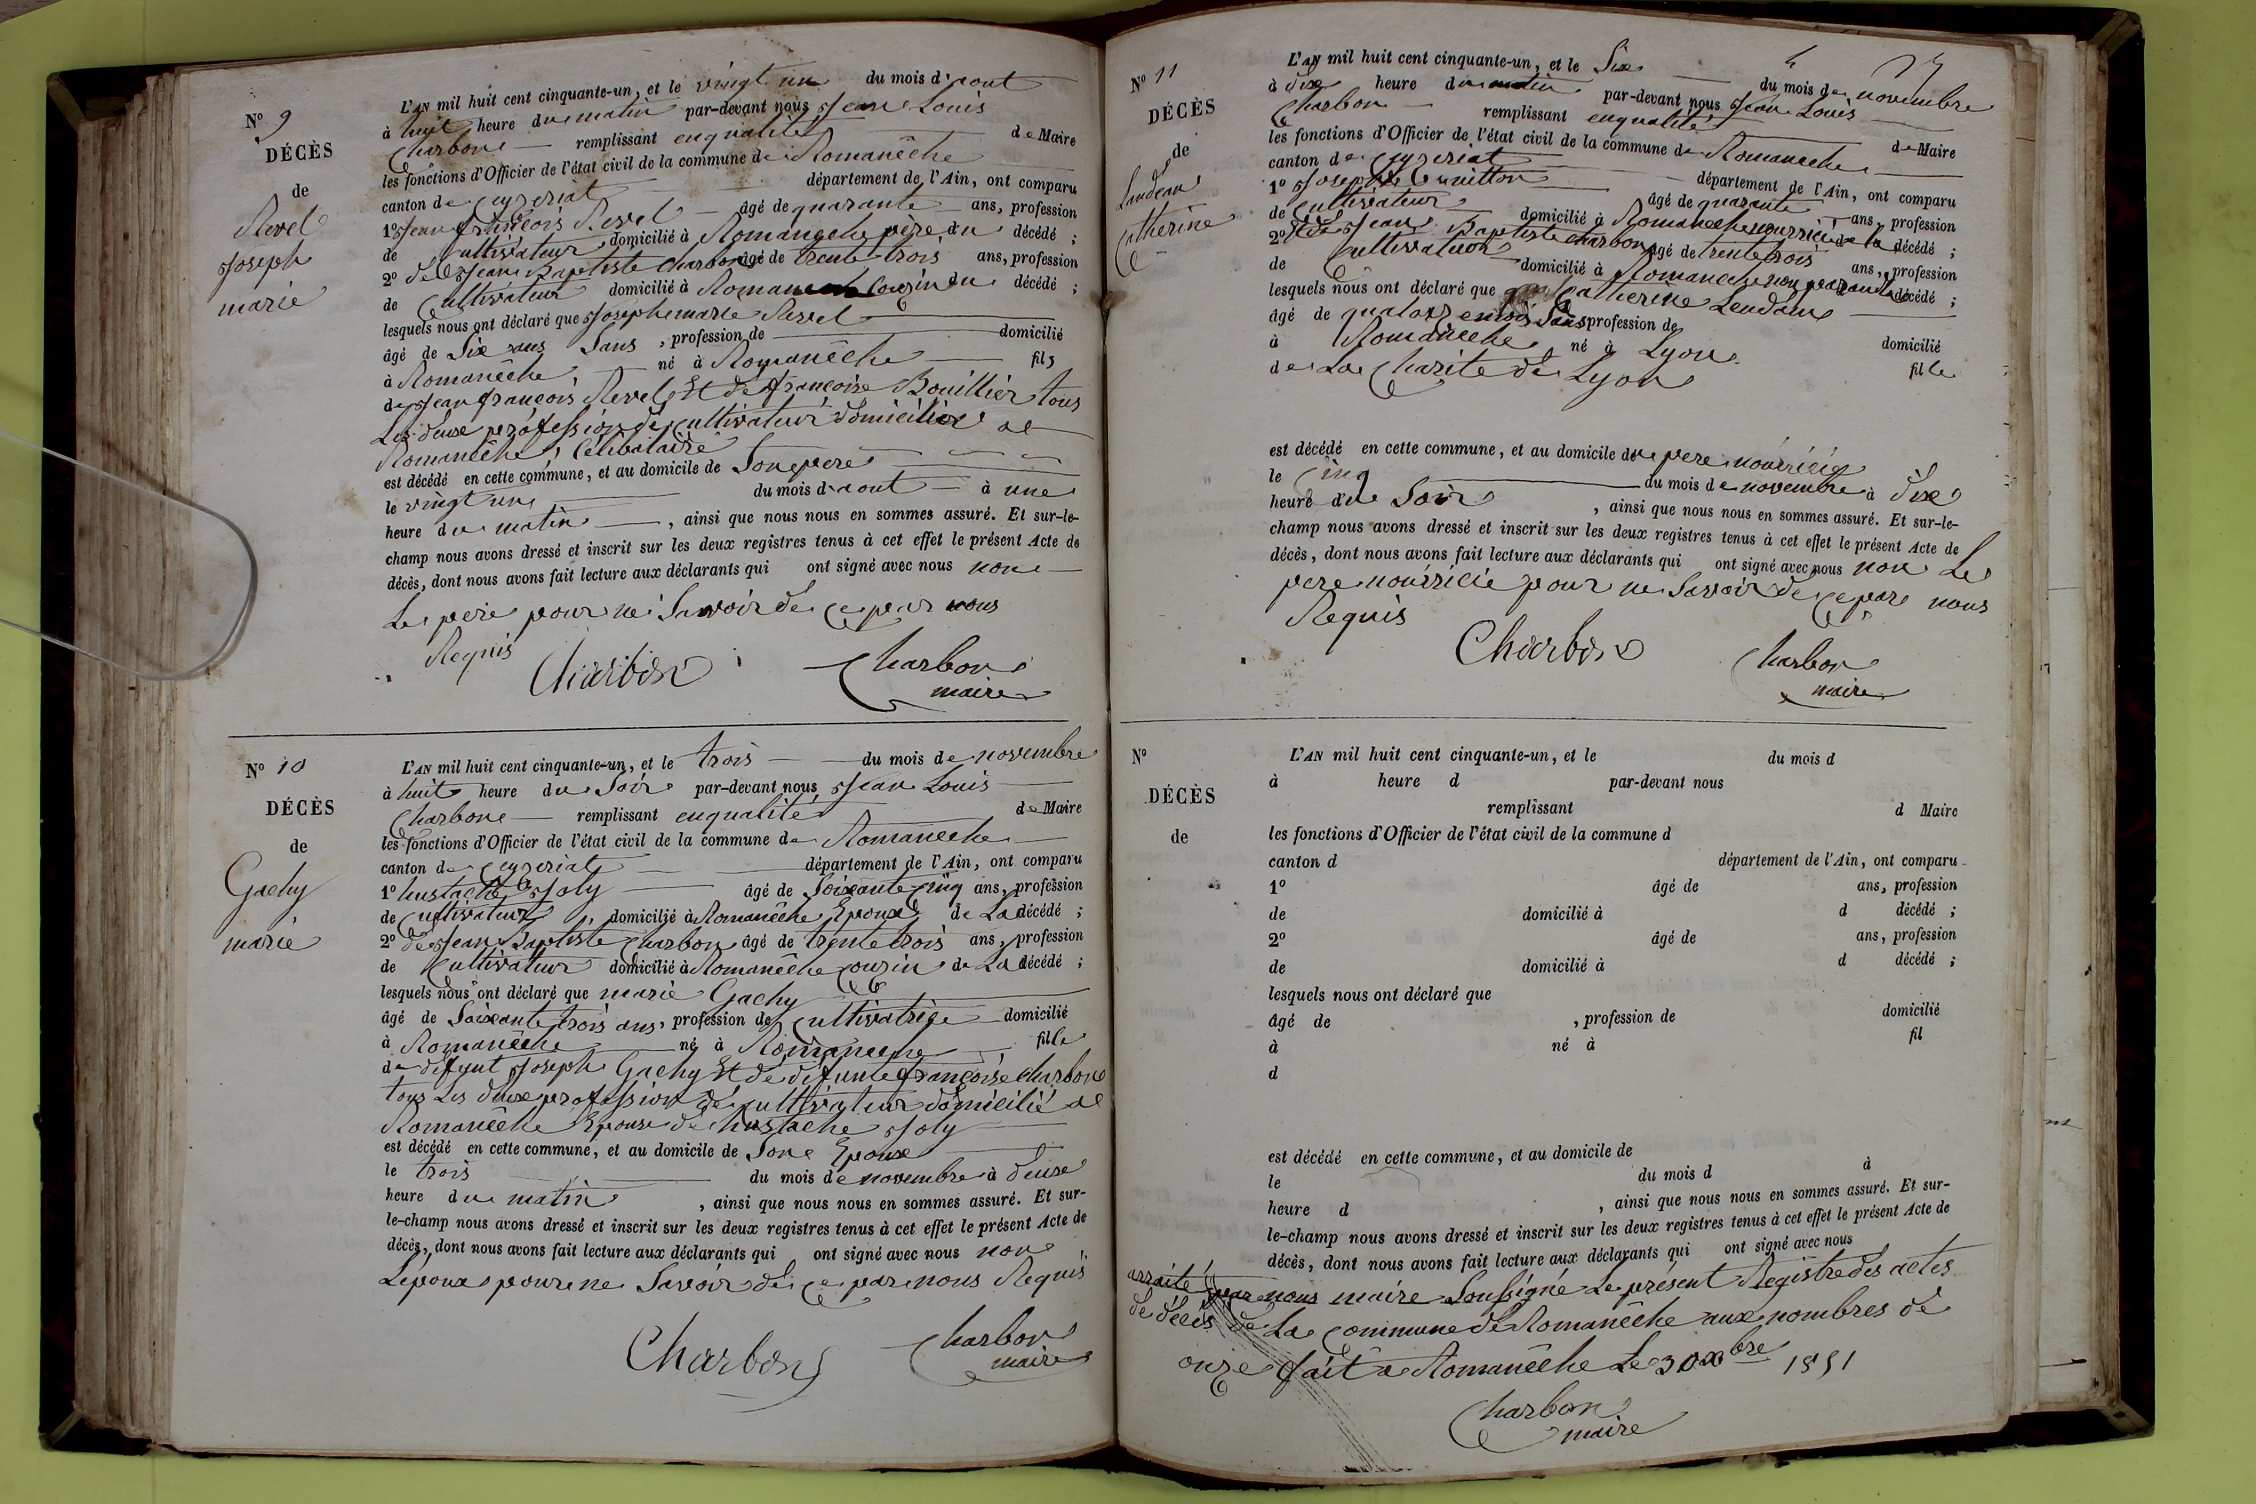 N° 9
DÉCÈS
de
Revel
Joseph
marie
L'AN mil huit cent cinquante-un, et le vingt un du mois d'aout
à huit heure du matin par-devant nous Jean Louis
Charbon remplissant en qualité de Maire
les fonctions d'Officier de l'état civil de la commune de Romanêche
canton de Ceyzeriat département de l'Ain, ont comparu
1° Jean françois Revel âgé de quarante ans, profession
de Cultivateur domicilié à Romaneche père du décédé ;
2° de Jean Baptiste Charbon âgé de trente trois ans, profession
de Cultivateur domicilié à Romaneche Cousin du décédé ;
lesquels nous ont déclaré que Joseph marie Revel
âgé de Six ans Sans , profession de domicilié
à Romanêche né à Romanêche fils
de Jean françois Revel Et de françoise Bouillier tous
Les deux proféssion de Cultivateur domicilier a
Romanêche, Célibataire
est décédé en cette commune, et au domicile de Son pere
le vingt un du mois d'aout à une
heure du matin , ainsi que nous nous en sommes assuré. Et sur-le-
champ nous avons dressé et inscrit sur les deux registres tenus à cet effet le présent Acte de
décès, dont nous avons fait lecture aux déclarants qui ont signé avec nous non
Le pere pour ne Savoir de ce par nous
Requis
Charbon Charbon
maire
N° 10
DÉCÈS
de
Gachy
marie
L'AN mil huit cent cinquante-un, et le trois du mois de novembre
à huit heure du Soir par-devant nous Jean Louis
Charbon remplissant en qualité de Maire
les fonctions d'Officier de l'état civil de la commune de Romanêche
canton de Ceyzeriat département de l'Ain, ont comparu
1° hustache Joly âgé de Soixante Cinq ans, profession
de Cultivateur domicilié à Romanêche Epoux de La décédé ;
2° de Jean Baptiste Charbon âgé de trente trois ans, profession
de Cultivateur domicilié à Romanêche cousin de La décédé ;
lesquels nous ont déclaré que marie Gachy
âgé de Soixante trois ans, profession de Cultivatrice domicilié
à Romanêche né à Romaneche fille
de défunt Joseph Gachy Et de défunte françoise Charbon
tous Les deux profession de cultivateur domicilié a
Romanêche Epouse de hustache Joly
est décédé en cette commune, et au domicile de Son Epoux
le trois du mois de novembre à deux
heure du matin , ainsi que nous nous en sommes assuré. Et sur-
le-champ nous avons dressé et inscrit sur les deux registres tenus à cet effet le présent Acte de
décès, dont nous avons fait lecture aux déclarants qui ont signé avec nous non
L'époux pour ne Savoir de ce par nous Requis
Charbon Charbon
maire
N° 11
DÉCÈS
de
Landeau
Catherine
L'AN mil huit cent cinquante-un, et le Six du mois de novembre
à dix heure du matin par-devant nous Jean Louis
Charbon remplissant en qualité de Maire
les fonctions d'Officier de l'état civil de la commune de Romaneche
canton de Ceyzeriat département de l'Ain, ont comparu
1° Joseph âgé de quarante ans, profession
de Cultivateur domicilié à Romaneche nourricié de la décédé ;
2° de Jean Baptiste Charbon âgé de trente trois ans, profession
de Cultivateur domicilié à Romaneche non parant La décédé ;
lesquels nous ont déclaré que Catherine Lendau
âgé de quatorze mois Sans profession de domicilié
à Romaneche né à Lyon fille
de La Charite de Lyon
est décédé en cette commune, et au domicile du pere nourricié
le Cinq du mois de novembre à dix
heure du Soir , ainsi que nous nous en sommes assuré. Et sur-le-
champ nous avons dressé et inscrit sur les deux registres tenus à cet effet le présent Acte de
décès, dont nous avons fait lecture aux déclarants qui ont signé avec nous non Le
pere nourricié pour ne Savoir de ce par nous
Requis
Charbon Charbon
maire
N°
DÉCÈS
de
L'AN mil huit cent cinquante-un, et le du mois d
à heure d par-devant nous
remplissant d Maire
les fonctions d'Officier de l'état civil de la commune d
canton d département de l'Ain, ont comparu
1° âgé de ans, profession
de domicilié à d décédé ;
2° âgé de ans, profession
de domicilié à d décédé ;
lesquels nous ont déclaré que
âgé de , profession de domicilié
à né à fil
d
est décédé en cette commune, et au domicile de
le du mois d à
heure d , ainsi que nous nous en sommes assuré. Et sur-
le-champ nous avons dressé et inscrit sur les deux registres tenus à cet effet le présent Acte de
décès, dont nous avons fait lecture aux déclarants qui ont signé avec nous
arraité par nous maire Soussigné Le présent Registre des actes
de décès de La Commune de Romanêche aux nombres de
onze fait a Romanêche Le 30 Xbre 1851
Charbon
maire